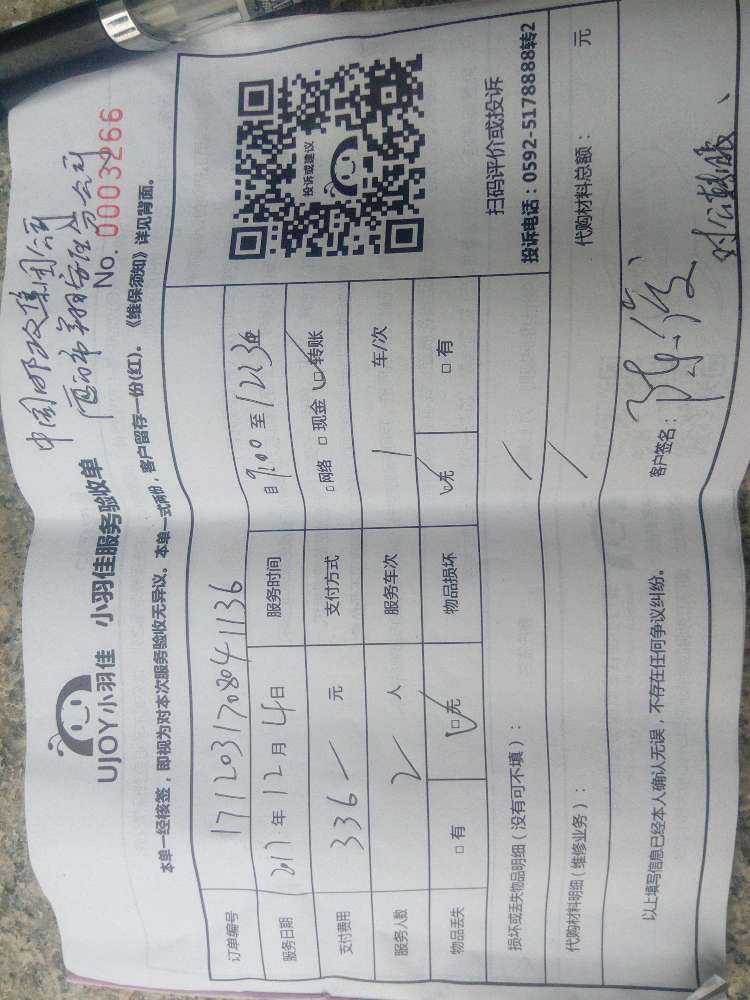 中国邮政集团公司
厦门市翔安区分公司
UJOY小羽佳 小羽佳服务验收单
No. 0003266
本单一经核签，即视为对本次服务验收无异议。本单一式两份，客户留存一份(红)。《维保须知》详见背面。
订单编号 1712031708041136
服务日期 2017年12月4日 服务时间 自9:00至12:30
支付费用 336 元 支付方式 □网络 □现金 □转账
服务人数 2 人 服务车次 1 车/次
物品丢失 □有 □无 物品损坏 □无 □有
投诉或建议
扫码评价或投诉
投诉电话：0592-5178888转2
损坏或丢失物品明细（没有可不填）：
代购材料明细（维修业务）： 代购材料总额： 元
以上填写信息已经本人确认无误，不存在任何争议纠纷。
客户签名：
对公转账